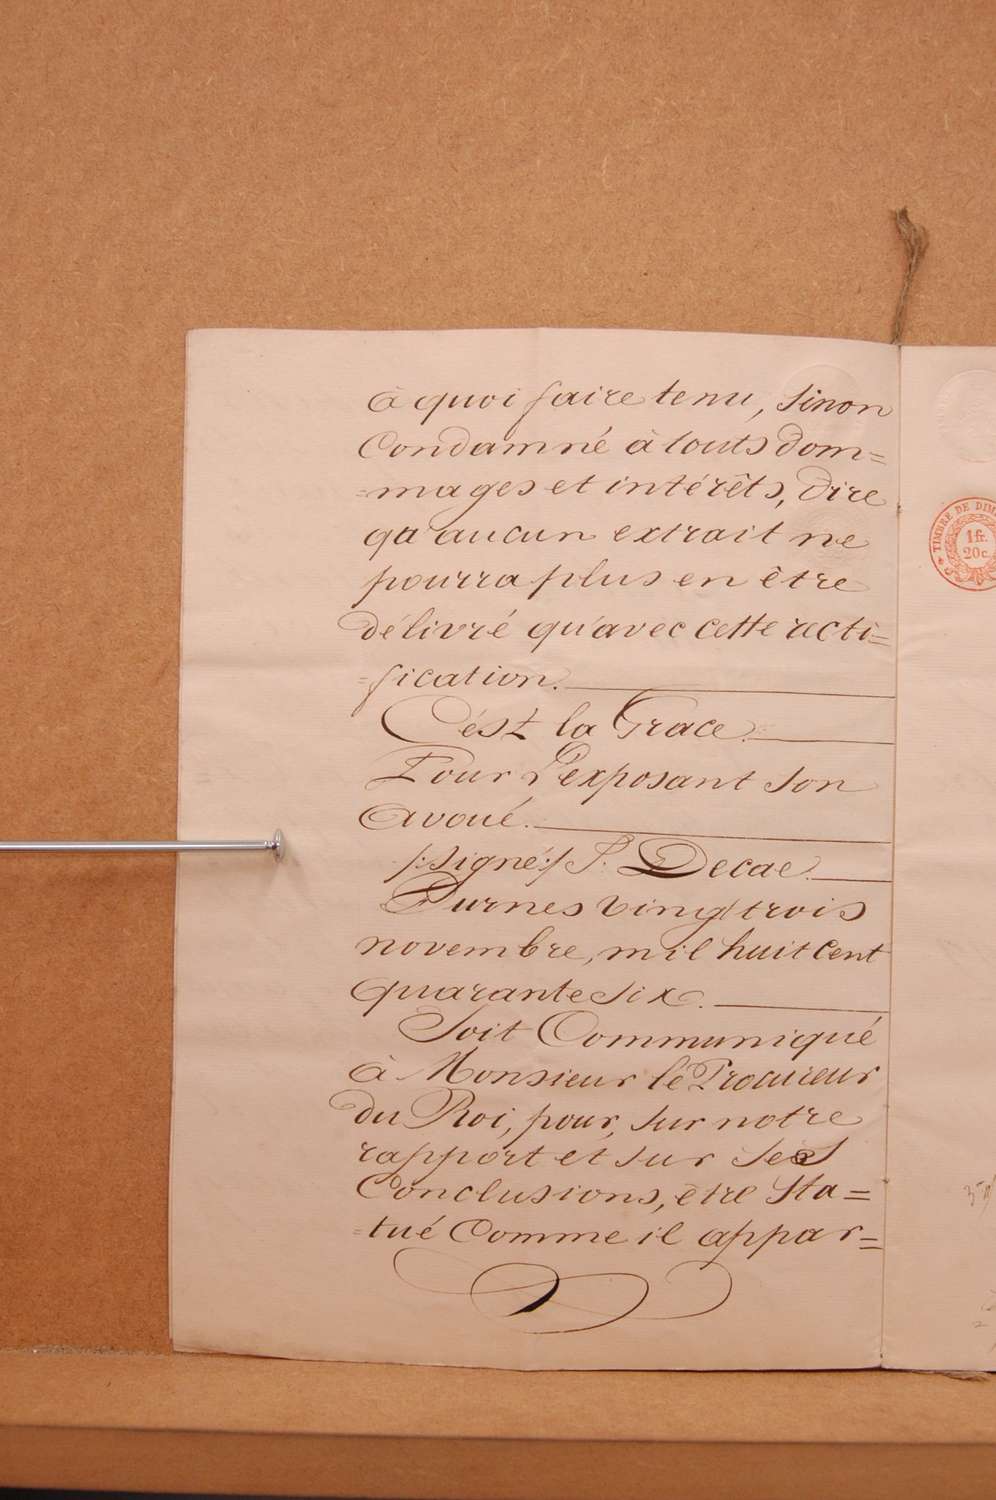 à quoi faire tenu, sinon
Condamné à touts dom=
=mages et intérêts, dire
qu'aucun extrait ne
pourra plus en être
délivré qu'avec cette recti=
=fication.
C'est la Grace.
Pour L'exposant son
avoué.
/:signé:/ P. Decae.
Furnes vingt trois
novembre, mil huit Cent
quarante six.
Soit Communiqué
à Monsieur le Procureur
du Roi, pour, sur notre
rapport et sur ses
Conclusions, être sta=
=tué Comme il appar=
TIMBRE DE DIM
1 fr.
20 c.